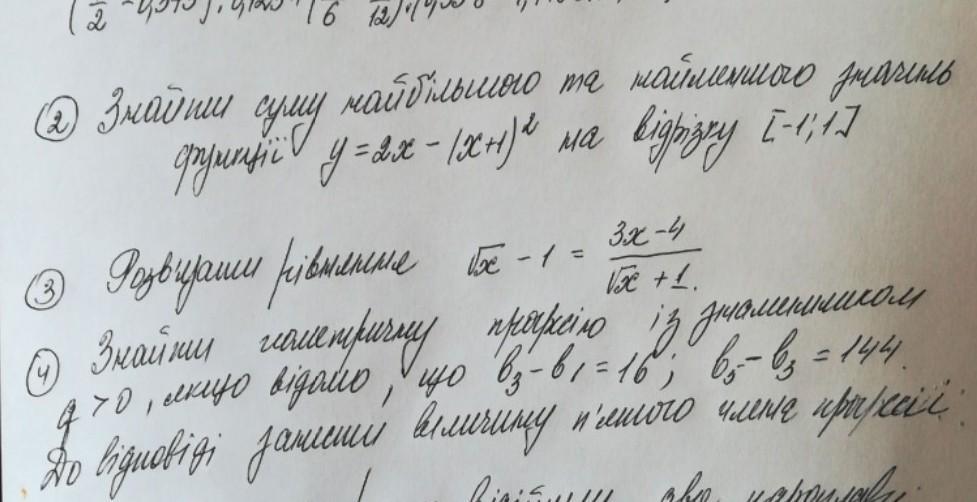 ② Знайти суму найбільшого та найменшого значень
функції y = 2x - (x+1)² на відрізку [-1; 1]
③ Розв'язати рівняння √x - 1 = (3x-4)/(√x + 1).
④ Знайти геометричну прогресію із знаменником
q > 0, якщо відомо, що b₃ - b₁ = 16; b₅ - b₃ = 144.
До відповіді записати величину п'ятого члена прогресії.